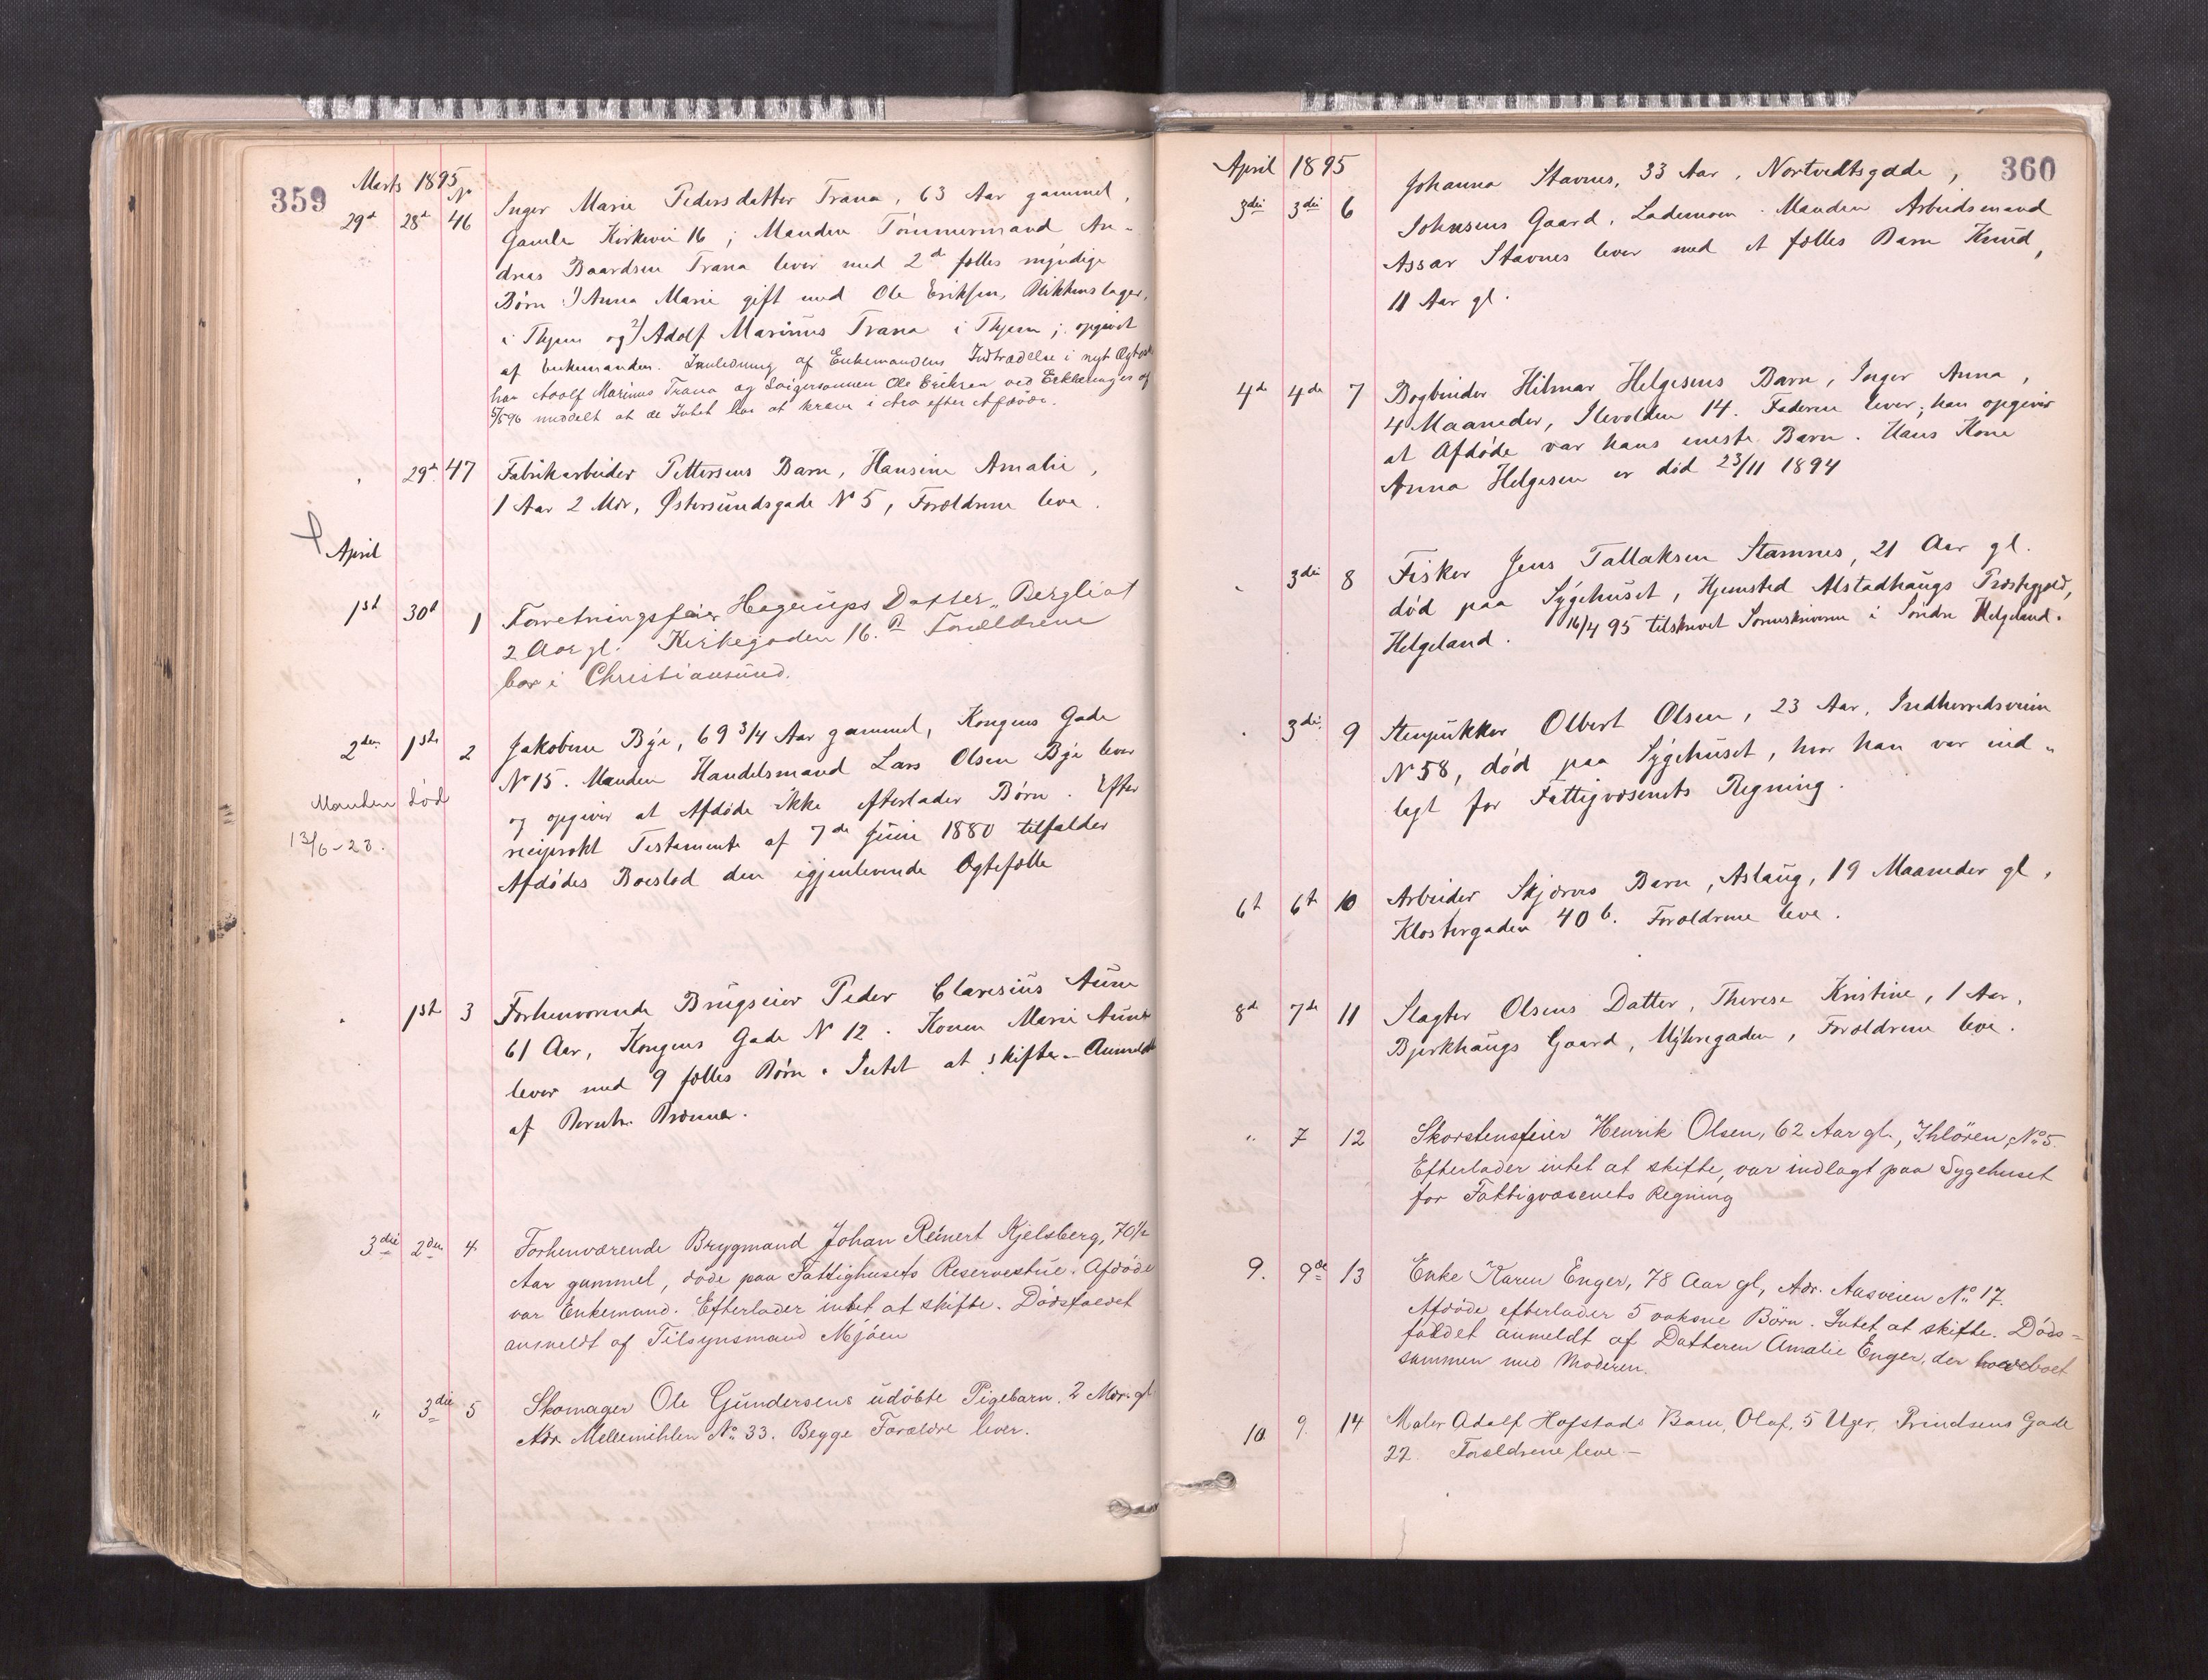 359
Marts 1895
No
29d 28d 46 Inger Marie Pedersdatter Trana, 63 Aar gammel,
Gamle Kirkevei 16; Manden Tömmermand An-
dreas Baardsen Trana lever med 2de fælles myndige
Börn 1) Anna Marie gift med Ole Eriksen, Blikkenslager,
i Thjem og 2) Adolf Marinus Trana i Thjem; opgivet
af Enkemanden. Inledning af Enkemandens Indtrædelse i nyt Ægtesk
har Adolf Marinus Trana og Svigersønnen Ole Eriksen ved Erklæringer af
5/5 96 meddelt at de Intet har at kræve i Arv efter Afdöde.
" 29d 47 Fabrikarbeider Pettersens Barn, Hansine Amalie,
1 Aar 2 Mdr, Østersundsgade No 5, Forældrene leve.
April
1st 30d 1 Forretningsfører Hagerups Datter, Bergliot
2 Aar gl. Kirkegaden 16. B Forældrene
bor i Christiansund.
2den 1ste 2 Jakobine Bye, 69 3/4 Aar gammel, Kongens Gade
No 15. Manden Handelsmand Lars Olsen Bye lever
og opgiver at Afdöde ikke efterlader Börn. Efter
reciprokt Testamente af 7de Juni 1880 tilfalder
Afdödes Boeslod den igjenlevende Ægtefælle
Manden död
13/6-23.
" 1ste 3 Forhenværende Brugseier Peder Claresius Aune
61 Aar, Kongens Gade No 12. Konen Marie Aune
lever med 9 fælles Börn. Intet at skifte. Anmeldt
af Bernh. Brænne.
3die 2den 4 Forhenværende Brygmand Johan Reinert Kjelsberg, 70 1/2
Aar gammel, döde paa Fattighusets Reservestue. Afdöde
var Enkemand. Efterlader intet at skifte. Dödsfaldet
anmeldt af Tilsynsmand Mjöen
" 3die 5 Skomager Ole Gundersens udöbte Pigebarn. 2 Mdr. gl
Adr. Mellemihlen No 33. Begge Forældre lever.
360
April 1895
3die 3die 6 Johanna Stavnes, 33 Aar, Nortvedtsgade,
Johnsens Gaard, Lademoen. Manden Arbeidsmand
Assar Stavnes lever med et fælles Barn Knud,
11 Aar gl.
4de 4de 7 Bogbinder Hilmar Helgesens Barn, Inger Anna,
4 Maaneder, Ilevolden 14. Faderen lever; han opgiver
at Afdöde var hans eneste Barn. Hans Kone
Anna Helgesen er död 23/11 1894
" 3die 8 Fisker Jens Tallaksen Stamnes, 21 Aar gl.
död paa Sygehuset, Hjemsted Alstadhaugs Præstegjeld,
Helgeland. 16/4 95 tilskrevet Sorenskriveren i Söndre Helgeland.
" 3die 9 Stenpukker Olbert Olsen, 23 Aar, Indherredsveien
No 58, död paa Sygehuset, hvor han var ind-
lagt for Fattigvæsenets Regning.
6t 6te 10 Arbeider Skjerves Barn, Aslaug, 19 Maaneder gl,
Klostergaden 40 b. Forældrene leve.
8de 7de 11 Slagter Olsens Datter, Therese Kristine, 1 Aar,
Bjerkhaugs Gaard, Myhregaden, Forældrene leve.
" 7 12 Skorstensfeier Henrik Olsen, 62 Aar gl., Ihlören, No 5.
Efterlader intet at skifte, var indlagt paa Sygehuset
for Fattigvæsenets Regning
9. 9de 13 Enke Karen Enger, 78 Aar gl, Adr. Aasveien No 17.
Afdöde efterlader 5 voksne Börn. Intet at skifte. Döds-
faldet anmeldt af Datteren Amalie Enger, der har boet
sammen med Moderen.
10 9. 14 Maler Adolf Hofstads Barn, Olaf, 5 Uger, Prindsens Gade
22. Forældrene leve -